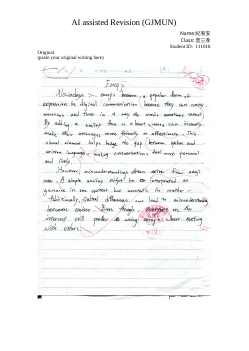 AI assisted Revision (GJMUN)
Name:
Class: 普三孝
Student ID: 111018
Original
(paste your original writing here)
Emoji
Nowadays, emojis become a popular form of
expression in digital communication because they can convey
emotions and tone in a way the words sometimes cannot.
By adding a smiling face or a heart, users can instantly
make their messages more friendly or affectionate. This
visual element helps bridge the gap between spoken and
written language, making conversations feel more personal
and lively.
However, misunderstandings often arise from emoji
use. A simple smiling might be interpreted as
genuine in one context but sarcastic in another.
Additionally, cultural differences can lead to misunderstanding
between Even though, everyone on the
internet still prefer using emojis when texting
with others.